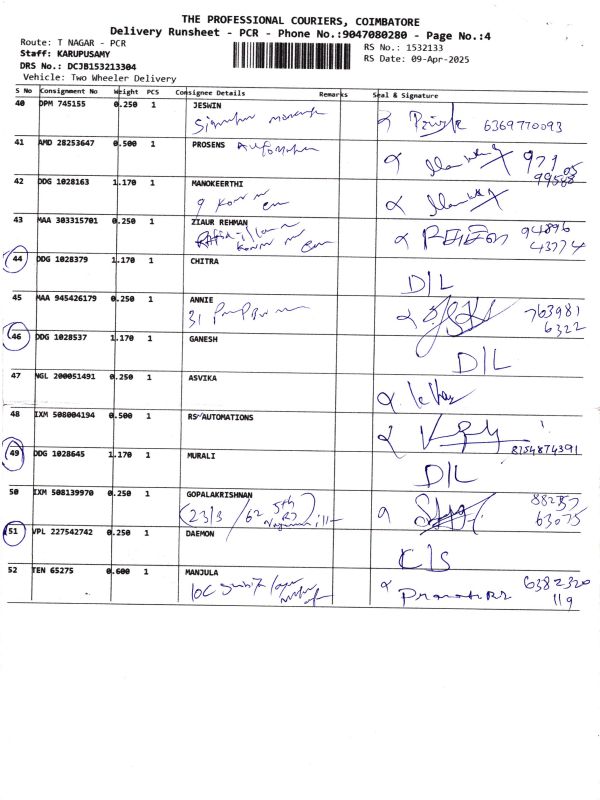 THE PROFESSIONAL COURIERS, COIMBATORE
Delivery Runsheet - PCR - Phone No.:9047080280 - Page No.:4
Route: T NAGAR - PCR
Staff: KARUPUSAMY
DRS No.: DCJB153213304
Vehicle: Two Wheeler Delivery
RS No.: 1532133
RS Date: 09-Apr-2025
S No Consignment No Weight PCS Consignee Details Remarks Seal & Signature
40 DPM 745155 0.250 1 JESWIN
6369770093
41 AMD 28253647 0.500 1 PROSENS
971 05
99588
42 DDG 1028163 1.170 1 MANOKEERTHI
43 MAA 303315701 0.250 1 ZIAUR REHMAN
94896
43774
44 DDG 1028379 1.170 1 CHITRA
D/L
45 MAA 945426179 0.250 1 ANNIE
31
763981
6322
46 DDG 1028537 1.170 1 GANESH
D/L
47 NGL 200051491 0.250 1 ASVIKA
48 IXM 508004194 0.500 1 RS AUTOMATIONS
8754874391
49 DDG 1028645 1.170 1 MURALI
D/L
50 IXM 508139970 0.250 1 GOPALAKRISHNAN
23/3 / 62 5th
88257
63075
51 VPL 227542742 0.250 1 DAEMON
C/S
52 TEN 65275 0.600 1 MANJULA
10C
6382320
119